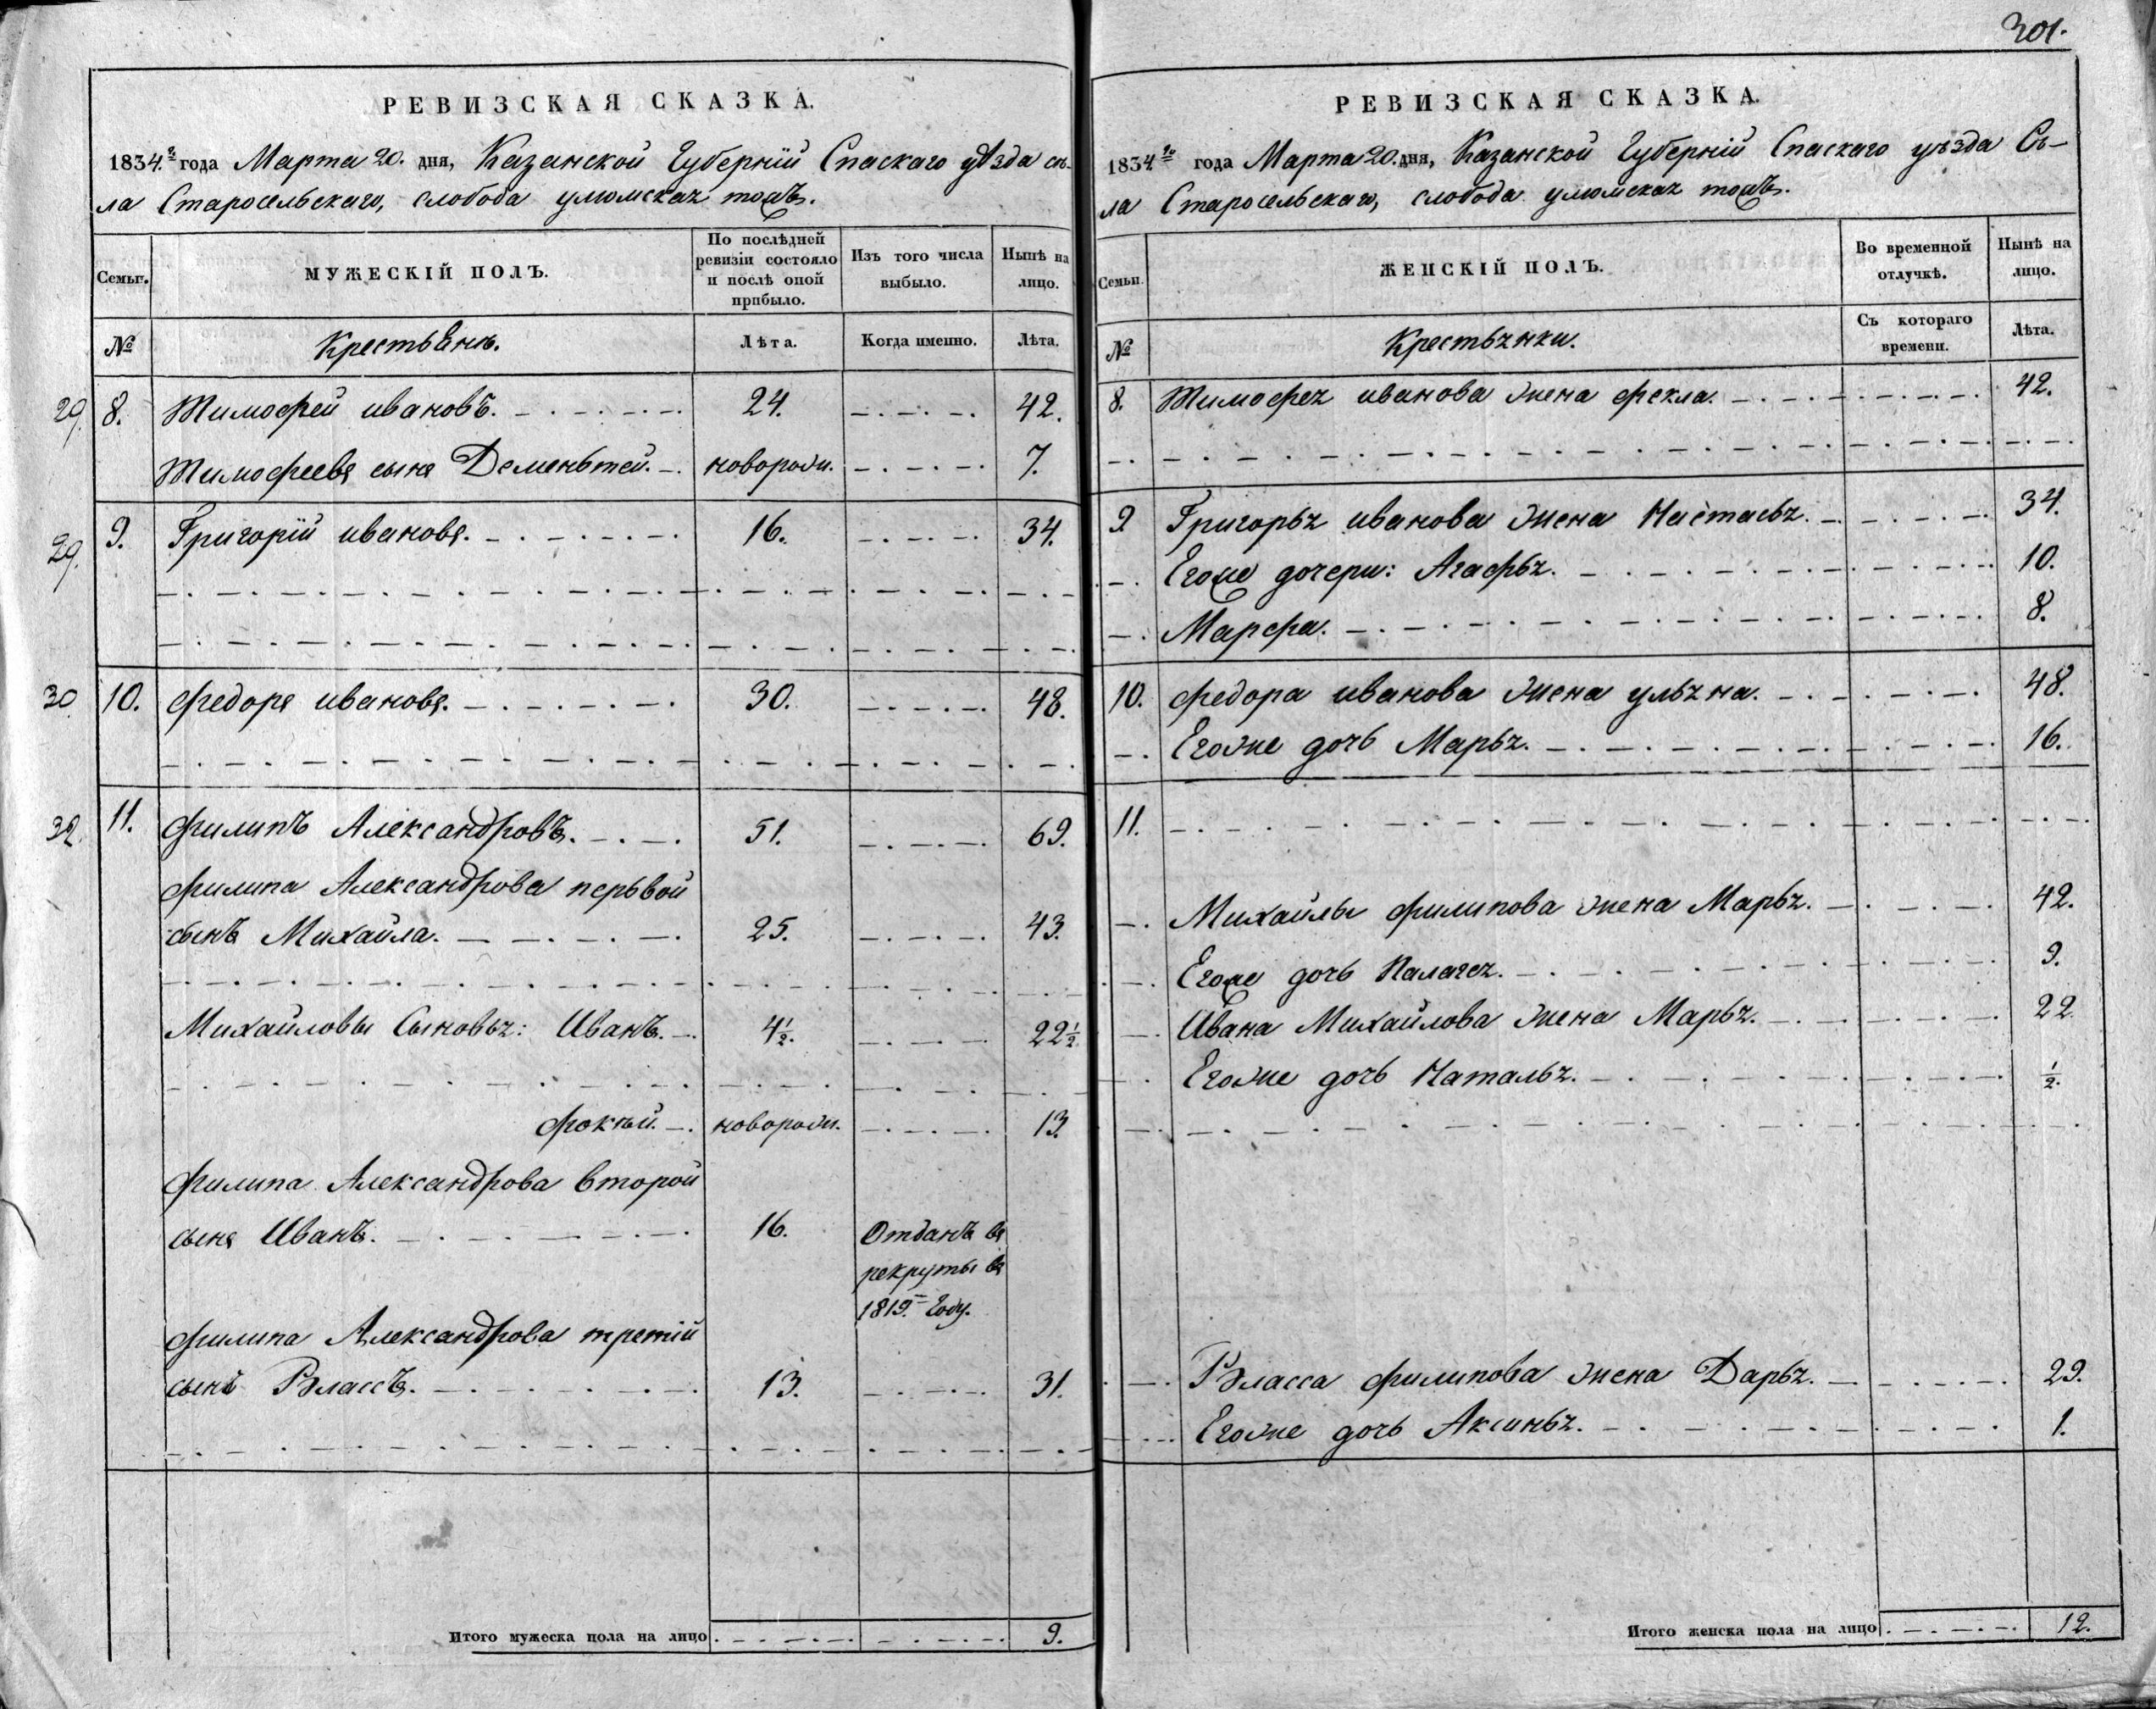 РЕВИЗСКАЯ СКАЗКА.
1834.го года Марта 20. дня, Казанской Губернїй Спаскаго уѣзда се-
ла Старосельскаго, слобода
Семьи.
МУЖЕСКІЙ ПОЛЪ.
По послѣдней ревизіи состояло и послѣ оной прибыло.
Изъ того числа выбыло.
Нынѣ на лицо.
№
Крестьяне.
Лѣта.
Когда именно.
Лѣта.
29. 8. Тимофей ивановъ. 24. 42.
Тимофеевъ сынъ Дементей. новорожд. 7.
29. 9. Григорїй ивановъ. 16. 34.
30. 10. федоръ ивановъ. 30. 48.
32. 11. филипъ Александровъ. 51. 69.
филипа Александрова первой
сынъ Михайла. 25. 43.
Михайловы Сыновья: Иванъ. 4½. 22½
новорожд. 13.
филипа Александрова второй
сынъ Иванъ. 16. Отданъ въ
рекруты въ
1819.м Году.
филипа Александрова третїй
сынъ Власъ. 13. 31.
Итого мужеска пола на лицо 9.
301.
РЕВИЗСКАЯ СКАЗКА.
1834го года Марта 20. дня, Казанской Губернїй Спаскаго уѣзда Се-
ла Старосельскаго, слобода
Семьи.
ЖЕНСКІЙ ПОЛЪ.
Во временной отлучкѣ.
Нынѣ на лицо.
№
Крестьянки.
Съ котораго времени.
Лѣта.
8. Тимофея иванова жена фекла. 42.
9 Григорья иванова жена Настасья. 34.
Егоже дочери: Агафья. 10.
Марфа. 8.
10. федора иванова жена ульяна. 48.
Егоже дочь Марья. 16.
11.
Михайлы филипова жена Марья. 42.
Егоже дочь Палагея. 9.
Ивана Михайлова жена Марья. 22
Егоже дочь Наталья. ½.
Власа филипова жена Дарья. 29.
Егоже дочь Аксинья. 1.
Итого женска пола на лицо 12.